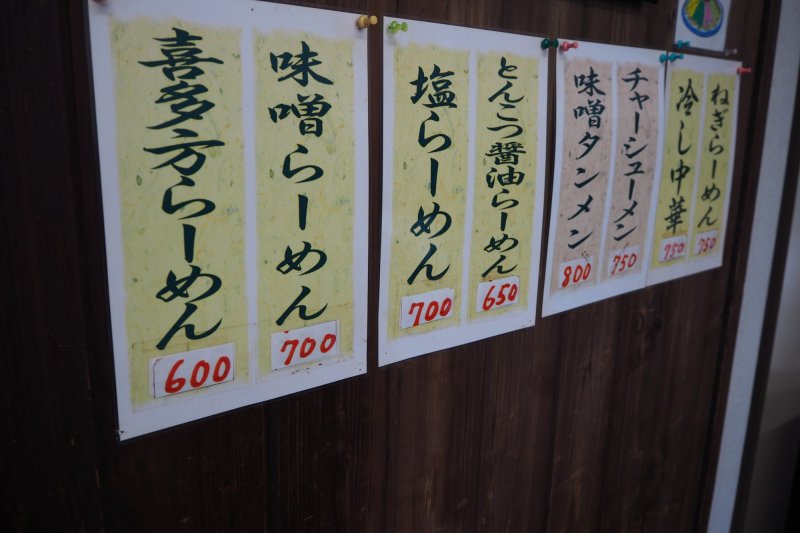 喜多方らーめん
600
味噌らーめん
700
塩らーめん
700
とんこつ醤油らーめん
650
味噌タンメン
800
チャーシューメン
750
冷し中華
750
ねぎらーめん
750